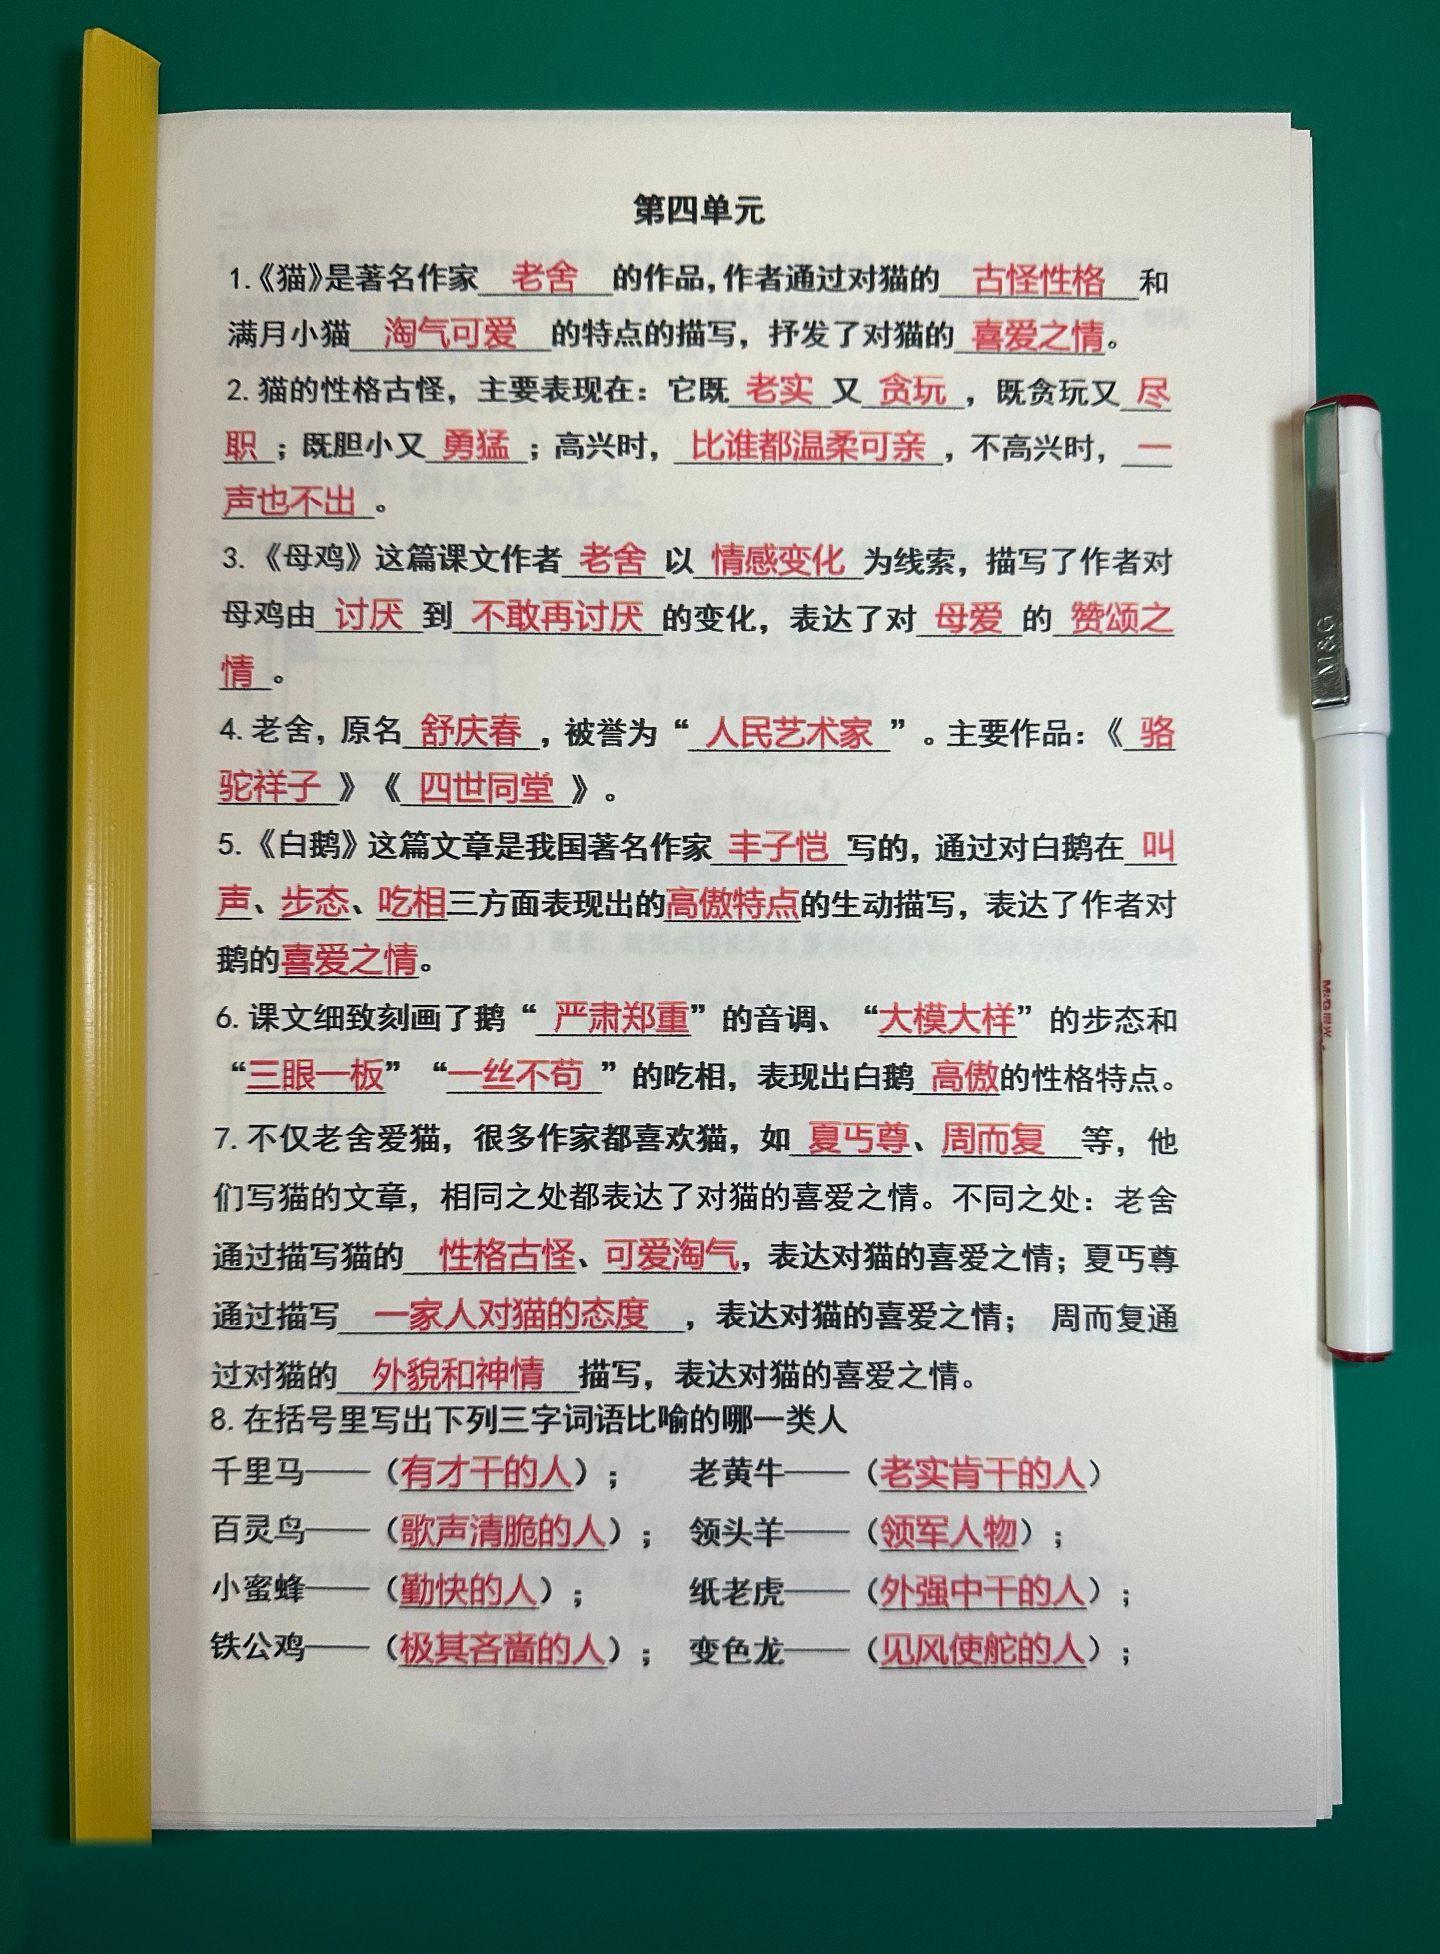 第四单元
1.《猫》是著名作家 老舍 的作品,作者通过对猫的 古怪性格 和
满月小猫 淘气可爱 的特点的描写，抒发了对猫的 喜爱之情。
2. 猫的性格古怪，主要表现在：它既 老实 又 贪玩 ，既贪玩又 尽
职 ；既胆小又 勇猛 ；高兴时， 比谁都温柔可亲 ，不高兴时， 一
声也不出 。
3. 《母鸡》这篇课文作者 老舍 以 情感变化 为线索，描写了作者对
母鸡由 讨厌 到 不敢再讨厌 的变化，表达了对 母爱 的 赞颂之
情 。
4. 老舍，原名 舒庆春 ，被誉为“ 人民艺术家 ”。主要作品：《 骆
驼祥子 》《 四世同堂 》。
5.《白鹅》这篇文章是我国著名作家 丰子恺 写的，通过对白鹅在 叫
声、步态、吃相三方面表现出的高傲特点的生动描写，表达了作者对
鹅的喜爱之情。
6. 课文细致刻画了鹅“ 严肃郑重”的音调、“大模大样”的步态和
“三眼一板” “一丝不苟 ”的吃相，表现出白鹅 高傲的性格特点。
7. 不仅老舍爱猫，很多作家都喜欢猫，如 夏丏尊、周而复 等，他
们写猫的文章，相同之处都表达了对猫的喜爱之情。不同之处：老舍
通过描写猫的 性格古怪、可爱淘气，表达对猫的喜爱之情；夏丏尊
通过描写 一家人对猫的态度 ，表达对猫的喜爱之情； 周而复通
过对猫的 外貌和神情 描写，表达对猫的喜爱之情。
8. 在括号里写出下列三字词语比喻的哪一类人
千里马——（有才干的人）； 老黄牛——（老实肯干的人）
百灵鸟——（歌声清脆的人）； 领头羊——（领军人物）；
小蜜蜂——（勤快的人）； 纸老虎——（外强中干的人）；
铁公鸡——（极其吝啬的人）； 变色龙——（见风使舵的人）；
M&G